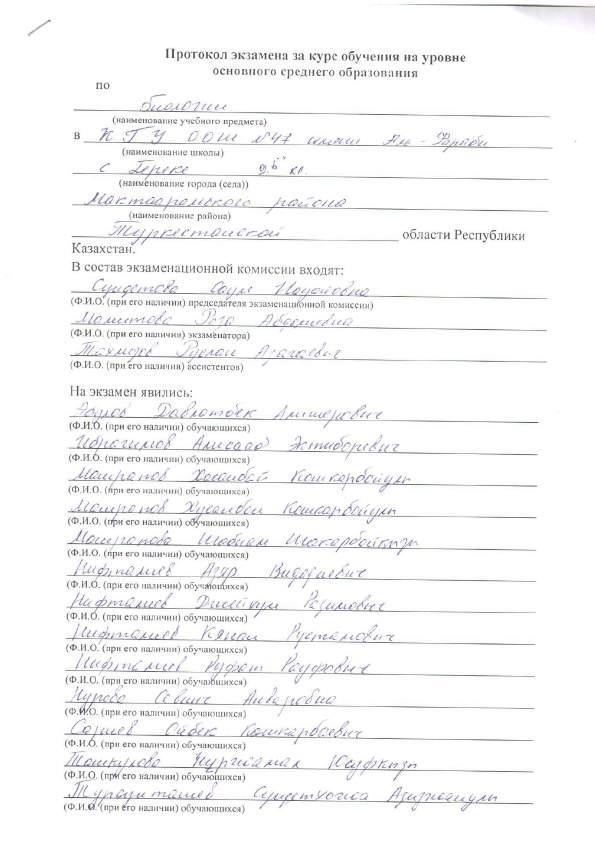 Протокол экзамена за курс обучения на уровне
основного среднего образования
по
биологии
(наименование учебного предмета)
в КГУ ООШ №47 имени Аль-Фараби
(наименование школы)
с Береке 9 "б" кл.
(наименование города (села))
Мактааральского района
(наименование района)
Туркестанской области Республики
Казахстан.
В состав экзаменационной комиссии входят:
Сеидетова Сауле
(Ф.И.О. (при его наличии) председателя экзаменационной комиссии)
Роза
(Ф.И.О. (при его наличии) экзаменатора)
Руслан
(Ф.И.О. (при его наличии) ассистентов)
На экзамен явились:
Давлатбек Алишерович
(Ф.И.О. (при его наличии) обучающихся)
Ибрагимов Алисаад Эстиборевич
(Ф.И.О. (при его наличии) обучающихся)
Машрапов Хасанбай Кошкарбайулы
(Ф.И.О. (при его наличии) обучающихся)
Машрапов Хусанбай Кошкарбайулы
(Ф.И.О. (при его наличии) обучающихся)
Машрапова Шакарбайкызы
(Ф.И.О. (при его наличии) обучающихся)
Нифталиев Азер Видадиевич
(Ф.И.О. (при его наличии) обучающихся)
Нифталиев Расимович
(Ф.И.О. (при его наличии) обучающихся)
Нифталиев Кянан Рустамович
(Ф.И.О. (при его наличии) обучающихся)
Нифталиев Руфат Рауфович
(Ф.И.О. (при его наличии) обучающихся)
Нурова Севинч Анваровна
(Ф.И.О. (при его наличии) обучающихся)
Ойбек Кошкарбаевич
(Ф.И.О. (при его наличии) обучающихся)
Ташкулова Нуржамал Юсуфкызы
(Ф.И.О. (при его наличии) обучающихся)
(Ф.И.О. (при его наличии) обучающихся)